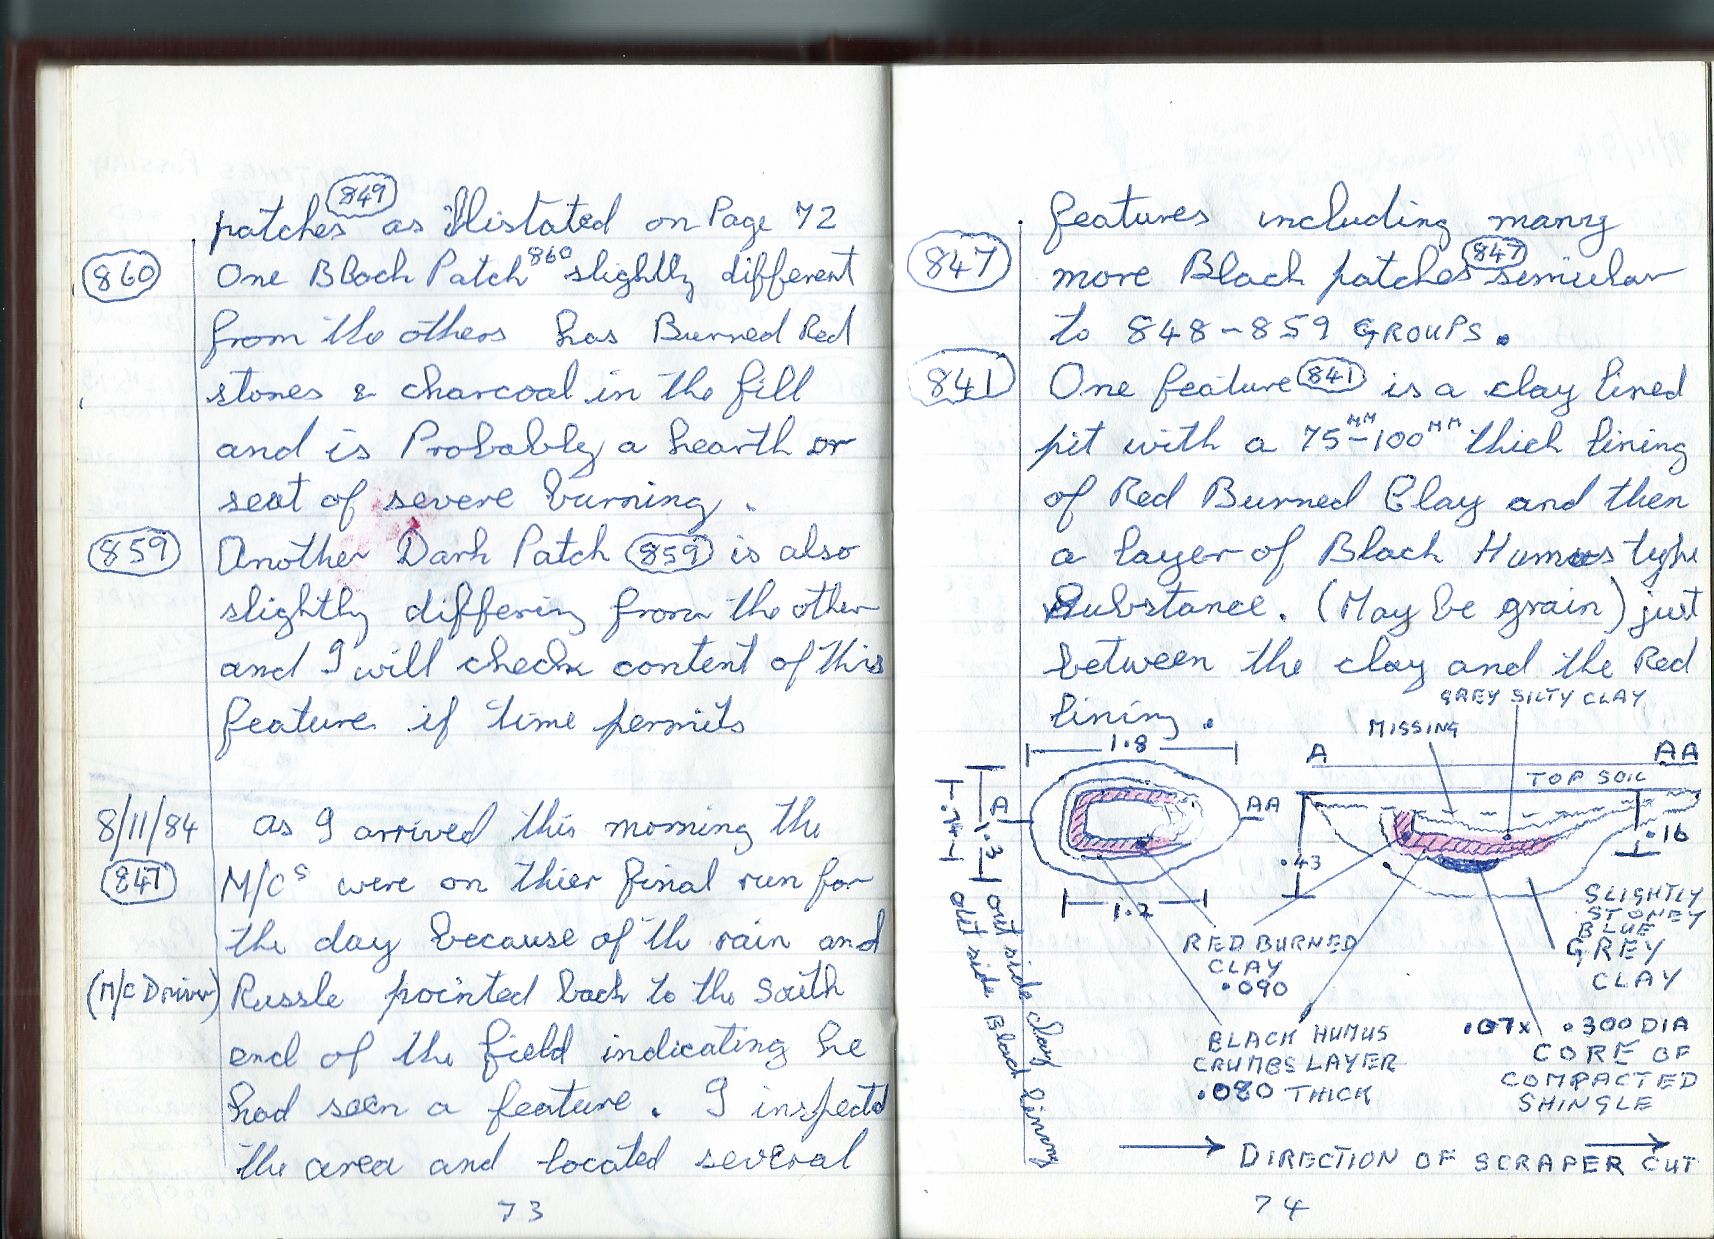 patches (849) as illistated on Page 72
(860) One Black Patch 860 slightly different
from the others has Burned Red
stones & charcoal in the fill
and is Probably a hearth or
seat of severe burning.
(859) Another Dark Patch (859) is also
slightly differing from the other
and I will check content of this
feature if time permits
8/11/84 as I arrived this morning the
(847) M/Cs were on thier final run for
the day because of the rain and
(M/C Driver) Russle pointed back to the South
end of the field indicating he
had seen a feature. I inspectd
the area and located several
73
features including many
(847) more Black patches (847) simicular
to 848-859 GROUPS.
(841) One feature (841) is a clay lined
pit with a 75MM-100MM thick lining
of Red Burned Clay and then
a layer of Black Humus type
Substance. (May be grain) just
between the clay and the Red
lining.
GREY SILTY CLAY
MISSING
1.8
A AA
TOP SOIL
A AA
.74
1.3
.43
.16
1.2
out side clay lining
out side Black
RED BURNED
CLAY
.090
SLIGHTLY
STONEY
BLUE
GREY
CLAY
BLACK HUMUS
CRUMBS LAYER
.080 THICK
.07x .300 DIA
CORE OF
COMPACTED
SHINGLE
DIRECTION OF SCRAPER CUT
74